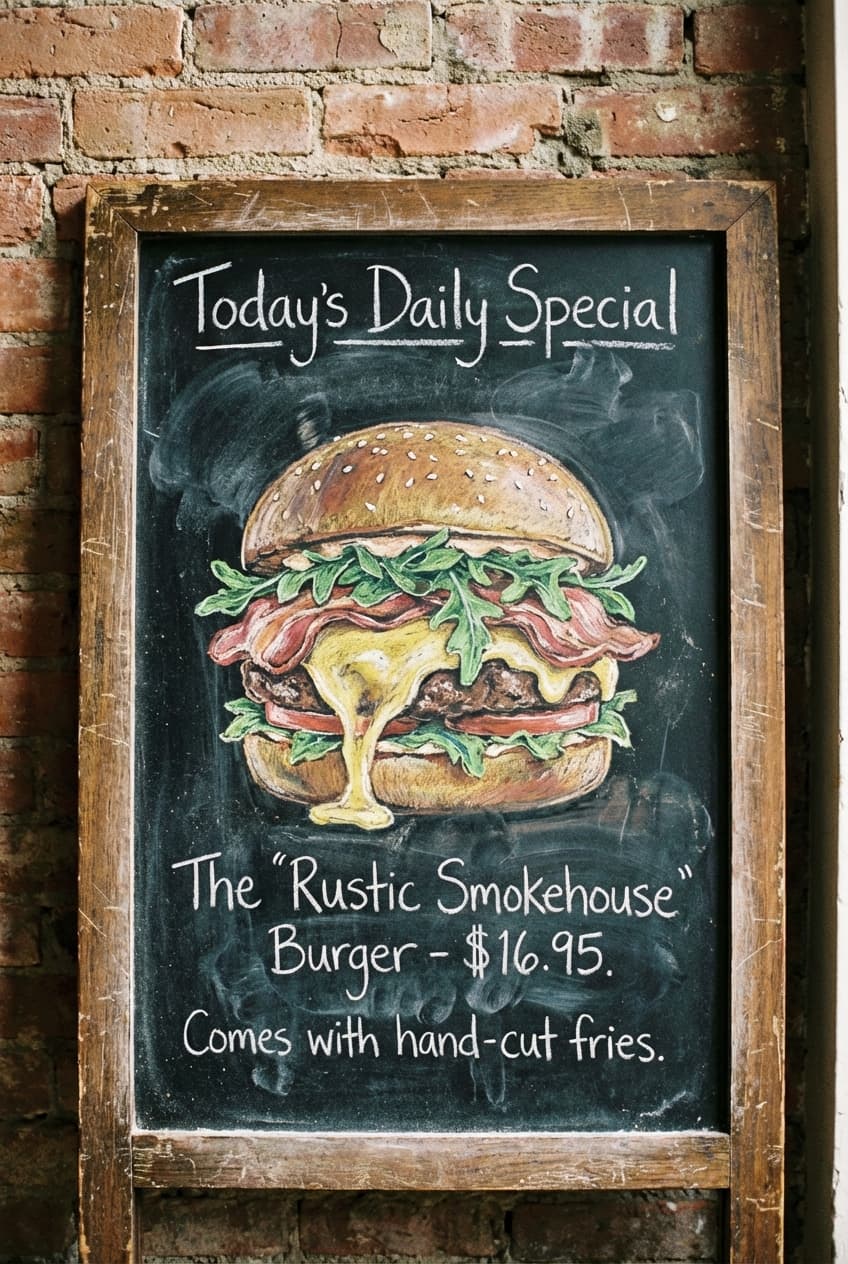 Today's Daily Special
The "Rustic Smokehouse"
Burger – $16.95.
Comes with hand-cut fries.